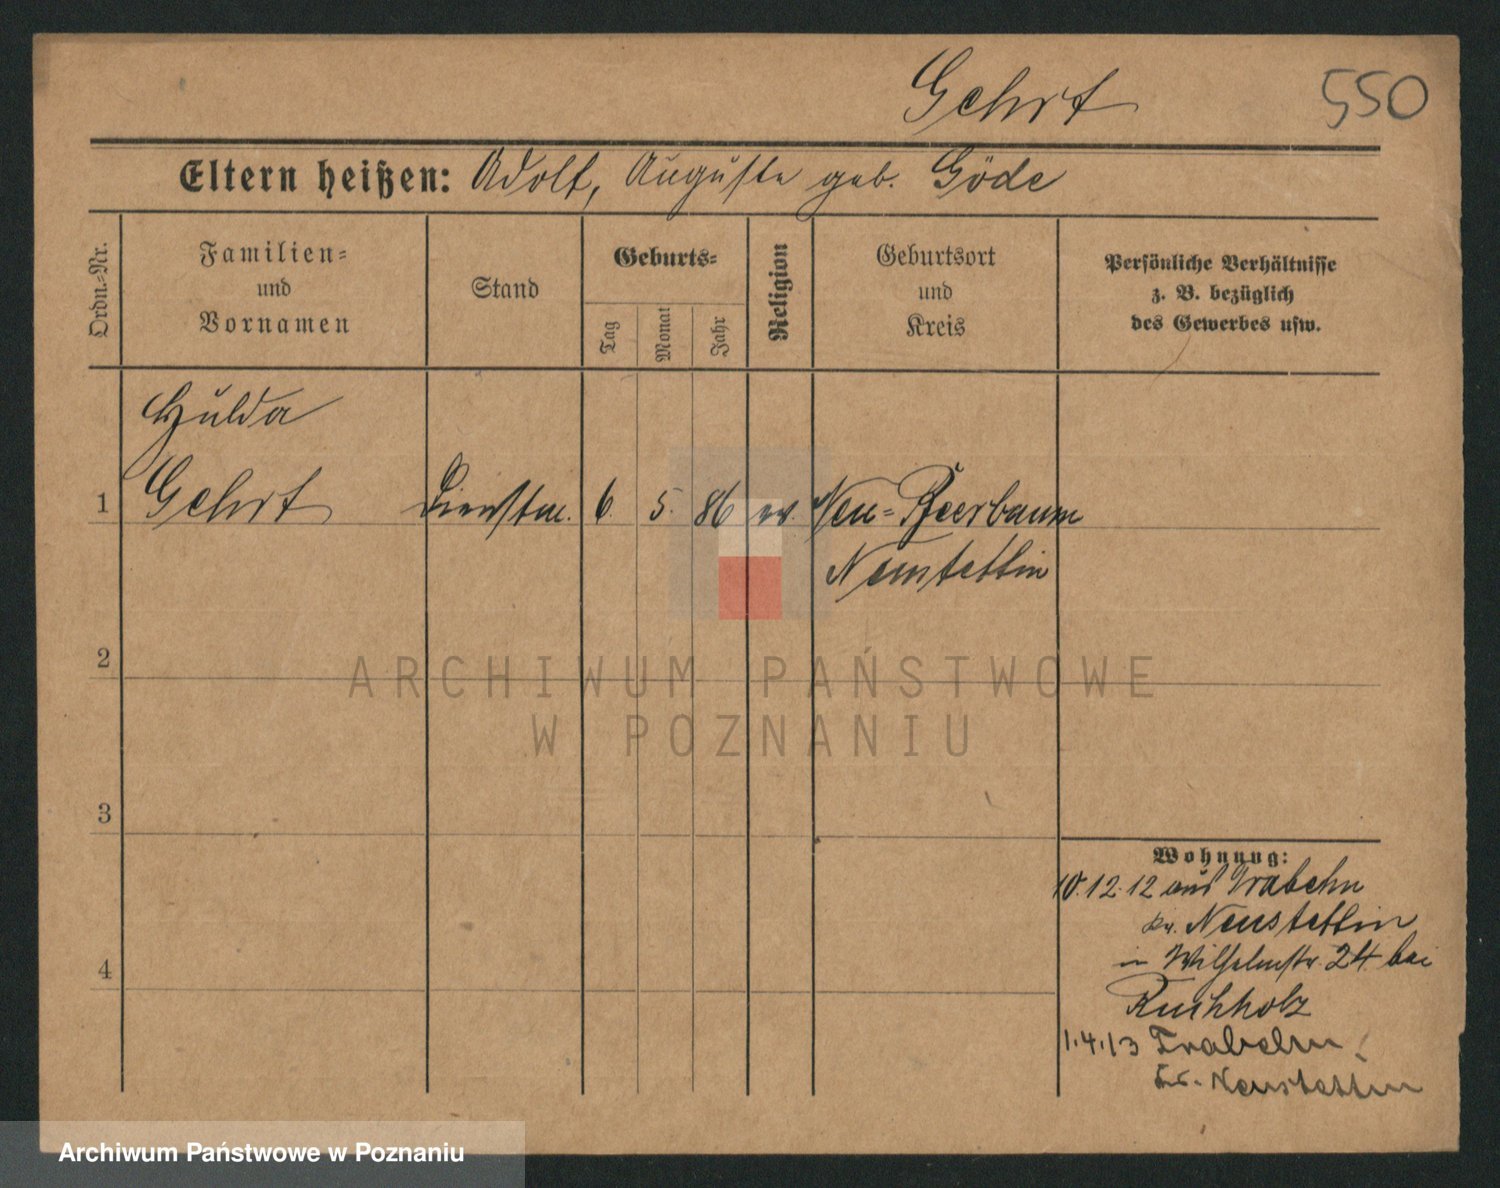 Gehrt
550
Eltern heißen: Adolf, Auguste geb. Göde
Ordn.-Nr.
Familien-
und
Vornamen
Stand
Geburts-
Tag
Monat
Jahr
Religion
Geburtsort
und
Kreis
Persönliche Verhältnisse
z. B. bezüglich
des Gewerbes usw.
Hulda
1 Gehrt Dienstm. 6. 5. 86 ev. Neu-
Neustettin
2
ARCHIWUM PAŃSTWOWE
W POZNANIU
3
Wohnung:
10.12.12 aus Trabehn
Kr. Neustettin
in Wilhelmstr. 24 bei
4
1.4.13 Trabehn
Kr. Neustettin
Archiwum Państwowe w Poznaniu